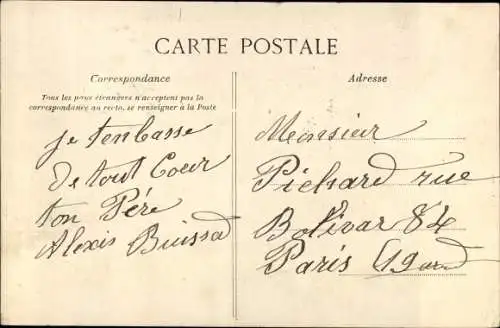 CARTE POSTALE
Correspondance
Tous les pays étrangers n'acceptent pas la
correspondance au recto, se renseigner à la Poste
je t'enbasse
de tout Coeur
ton Pére
Alexis Buissod
Adresse
Monsieur
Pichard rue
Bolivar 84
Paris 19